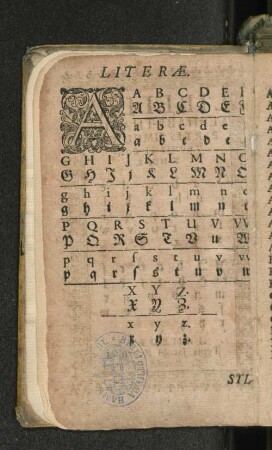 LITERÆ.
A
A B C D E F
A B C D E F
a b c d e
a b c d e
G H I J K L M N O
G H I J K L M N O
g h i j k l m n o
g h i j k l m n o
P Q R S T U V W
P Q R S T V u W
p q r ſ s t u v w
p q r ſ s t u v w
X Y Z.
X Y Z.
x y z.
x y z.
STL